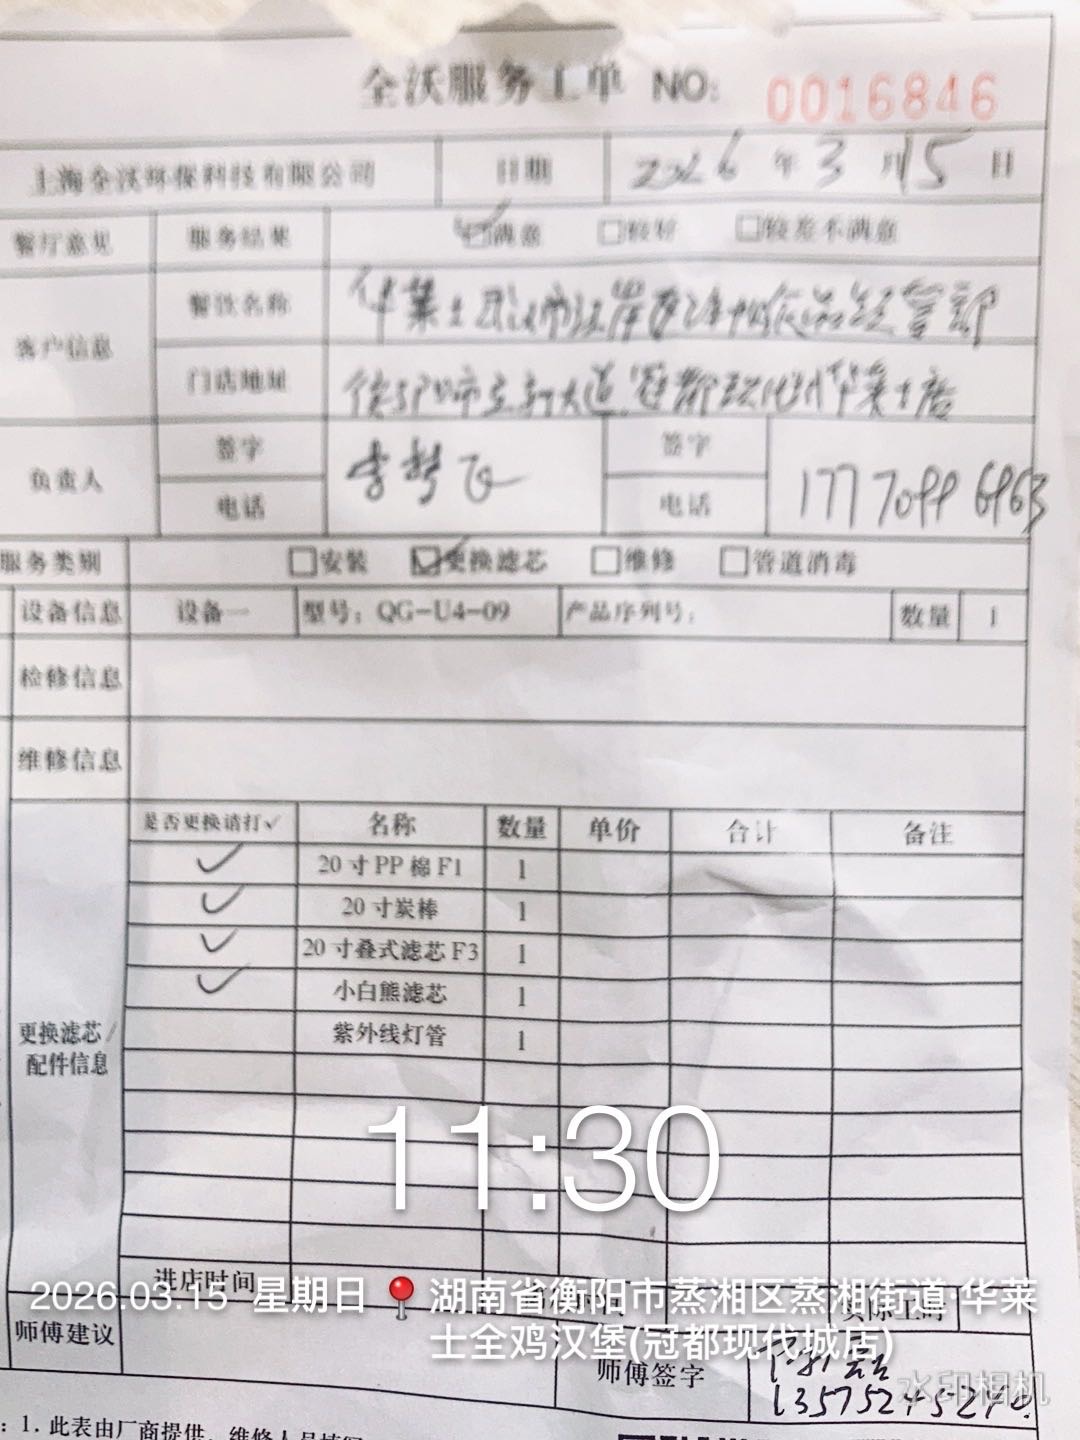 全沃服务工单 NO: 0016846
上海全沃环保科技有限公司 日期 2026年3月15日
餐厅意见 服务结果 ☑满意 □较好 □较差不满意
客户信息 餐饮名称 华莱士武汉市江岸区 食品经营部
门店地址 衡阳市 大道冠都现代城华莱士店
负责人 签字 李 签字
电话 电话 17770996963
服务类别 □安装 ☑更换滤芯 □维修 □管道消毒
设备信息 设备一 型号：QG-U4-09 产品序列号： 数量 1
检修信息
维修信息
是否更换请打✓ 名称 数量 单价 合计 备注
✓ 20寸PP棉F1 1
✓ 20寸炭棒 1
✓ 20寸叠式滤芯F3 1
✓ 小白熊滤芯 1
紫外线灯管 1
更换滤芯/
配件信息
11:30
进店时间 实际工时
2026.03.15 星期日 湖南省衡阳市蒸湘区蒸湘街道·华莱
士全鸡汉堡(冠都现代城店)
师傅建议
师傅签字
水印相机
：1. 此表由厂商提供，维修人员填写